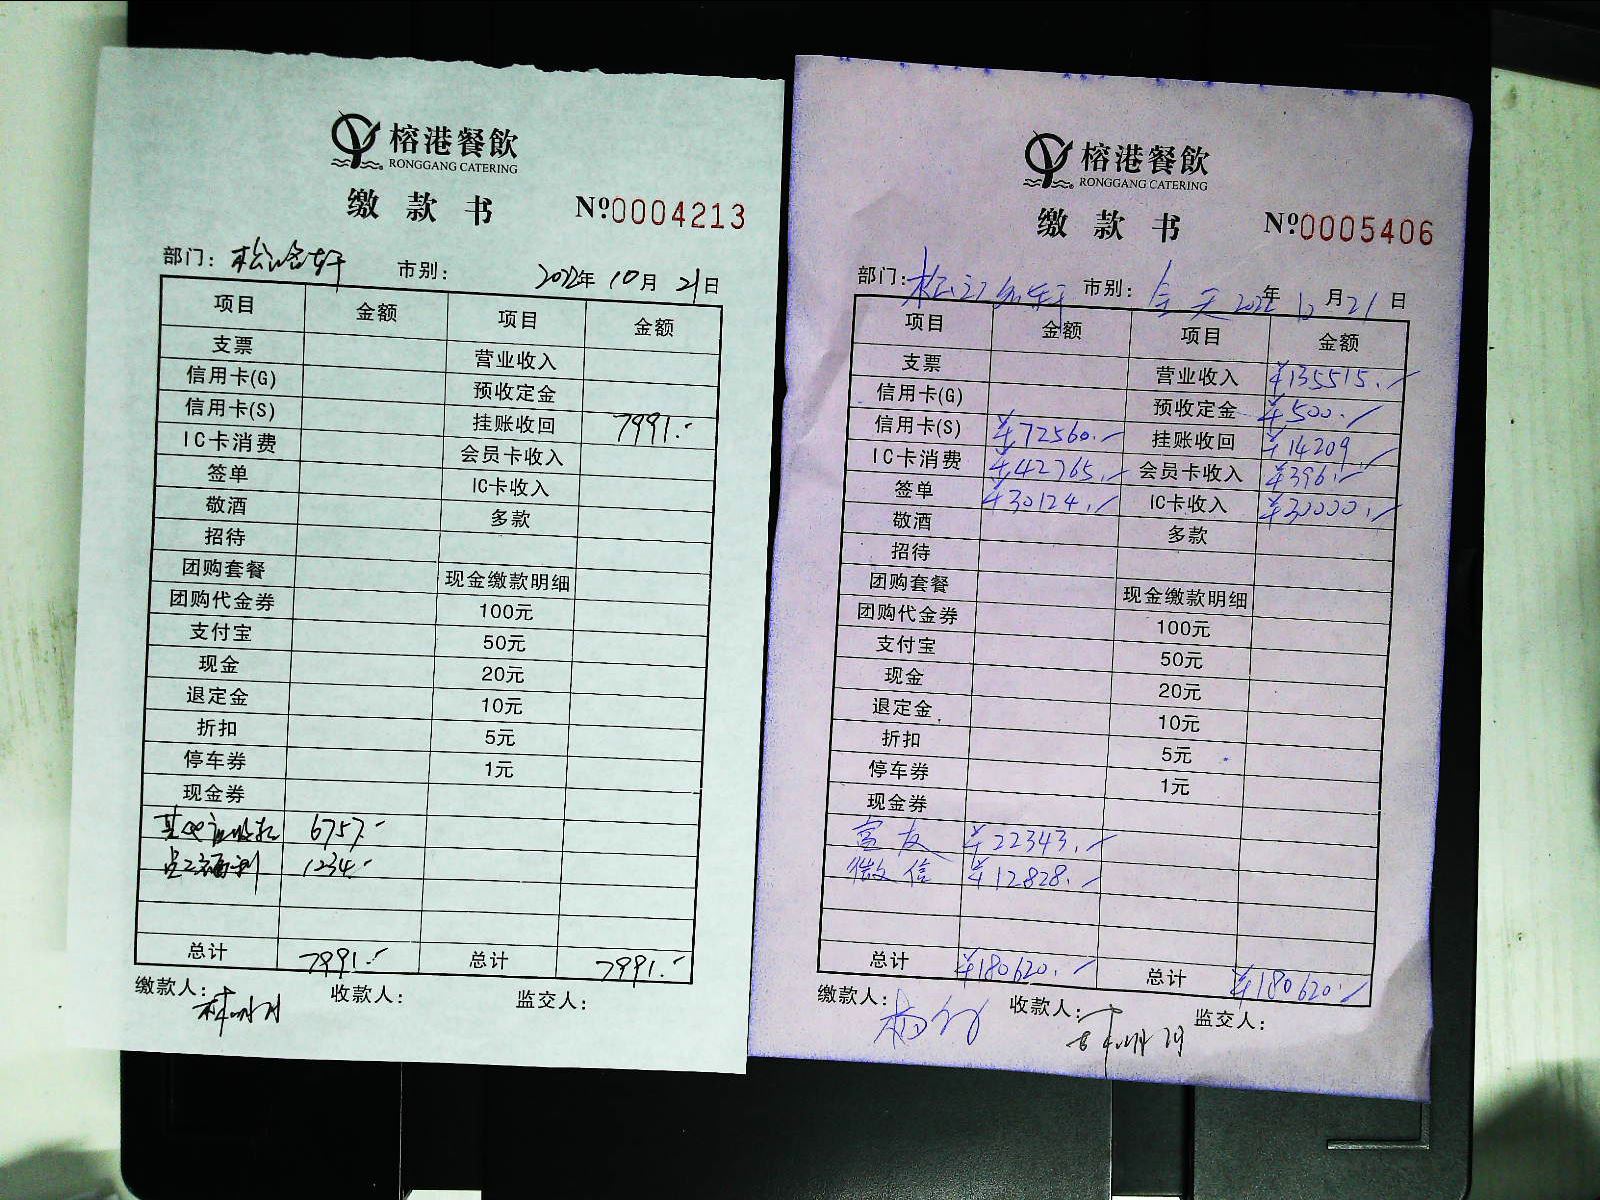 榕港餐飲
RONGGANG CATERING
缴款书 №0004213
部门: 市别: 2022年10月21日
项目 金额 项目 金额
支票 营业收入
信用卡(G) 预收定金
信用卡(S) 挂账收回 7991.-
IC卡消费 会员卡收入
签单 IC卡收入
敬酒 多款
招待
团购套餐 现金缴款明细
团购代金券 100元
支付宝 50元
现金 20元
退定金 10元
折扣 5元
停车券 1元
现金券
其他应收款 6757.-
员工福利 1234.-
总计 7991.- 总计 7991.-
缴款人: 收款人: 监交人:
榕港餐飲
RONGGANG CATERING
缴款书 №0005406
部门: 市别: 全天 2022年10月21日
项目 金额 项目 金额
支票 营业收入 ¥135515.-
信用卡(G) 预收定金 ¥500.-
信用卡(S) ¥72560.- 挂账收回 ¥14209.-
IC卡消费 ¥42765.- 会员卡收入 ¥396.-
签单 ¥30124.- IC卡收入 ¥30000.-
敬酒 多款
招待
团购套餐 现金缴款明细
团购代金券 100元
支付宝 50元
现金 20元
退定金 10元
折扣 5元
停车券 1元
现金券
富友 ¥22343.-
微信 ¥12828.-
总计 ¥180620.- 总计 ¥180620.-
缴款人: 收款人: 监交人: